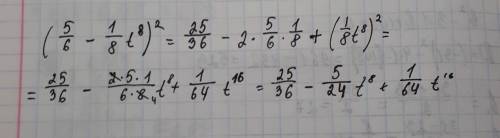 (5/6 - 1/8 t⁸)² = 25/36 - 2 · 5/6 · 1/8 + (1/8 t⁸)² =
= 25/36 - 2·5·1/6·8₄ t⁸ + 1/64 t¹⁶ = 25/36 - 5/24 t⁸ + 1/64 t¹⁶